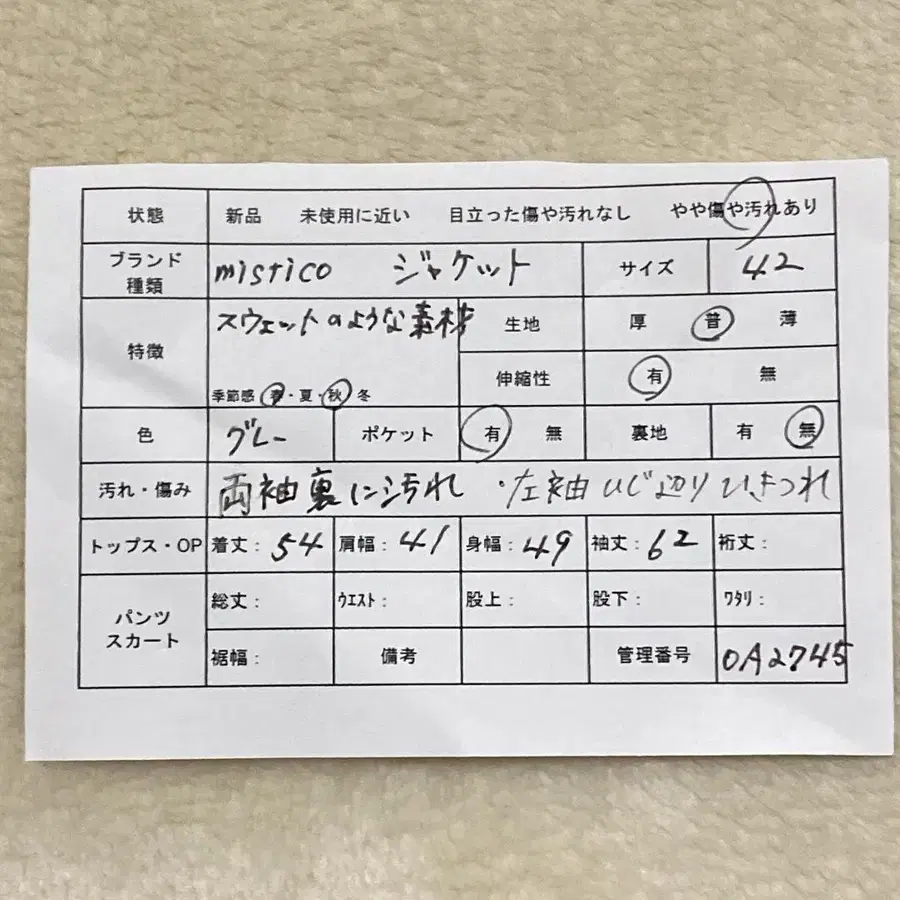 状態 新品 未使用に近い 目立った傷や汚れなし やや傷や汚れあり
ブランド 種類 mistico ジャケット サイズ 42
特徴 スウェットのような素材 生地 厚 普 薄
季節感 春・夏・秋・冬 伸縮性 有 無
色 グレー ポケット 有 無 裏地 有 無
汚れ・傷み 両袖裏に汚れ ・左袖ひじ辺りひきつれ
トップス・OP 着丈: 54 肩幅: 41 身幅: 49 袖丈: 62 裄丈:
パンツ スカート 総丈: ウエスト: 股上: 股下: ワタリ:
裾幅: 備考 管理番号 OA2745